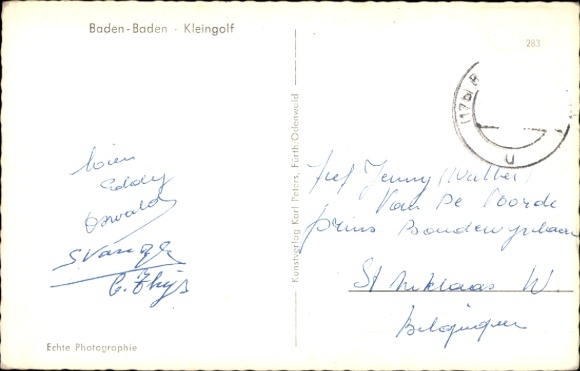 Baden-Baden - Kleingolf
283
(17b) B
U
Eddy
Oswald
C. Thijs
Echte Photographie
Kunstverlag Karl Peters, Fürth/Odenwald
Jef Jenny (Walter)
Van De Voorde
prins Boudewijnlaan
St Niklaas W.
Belgique